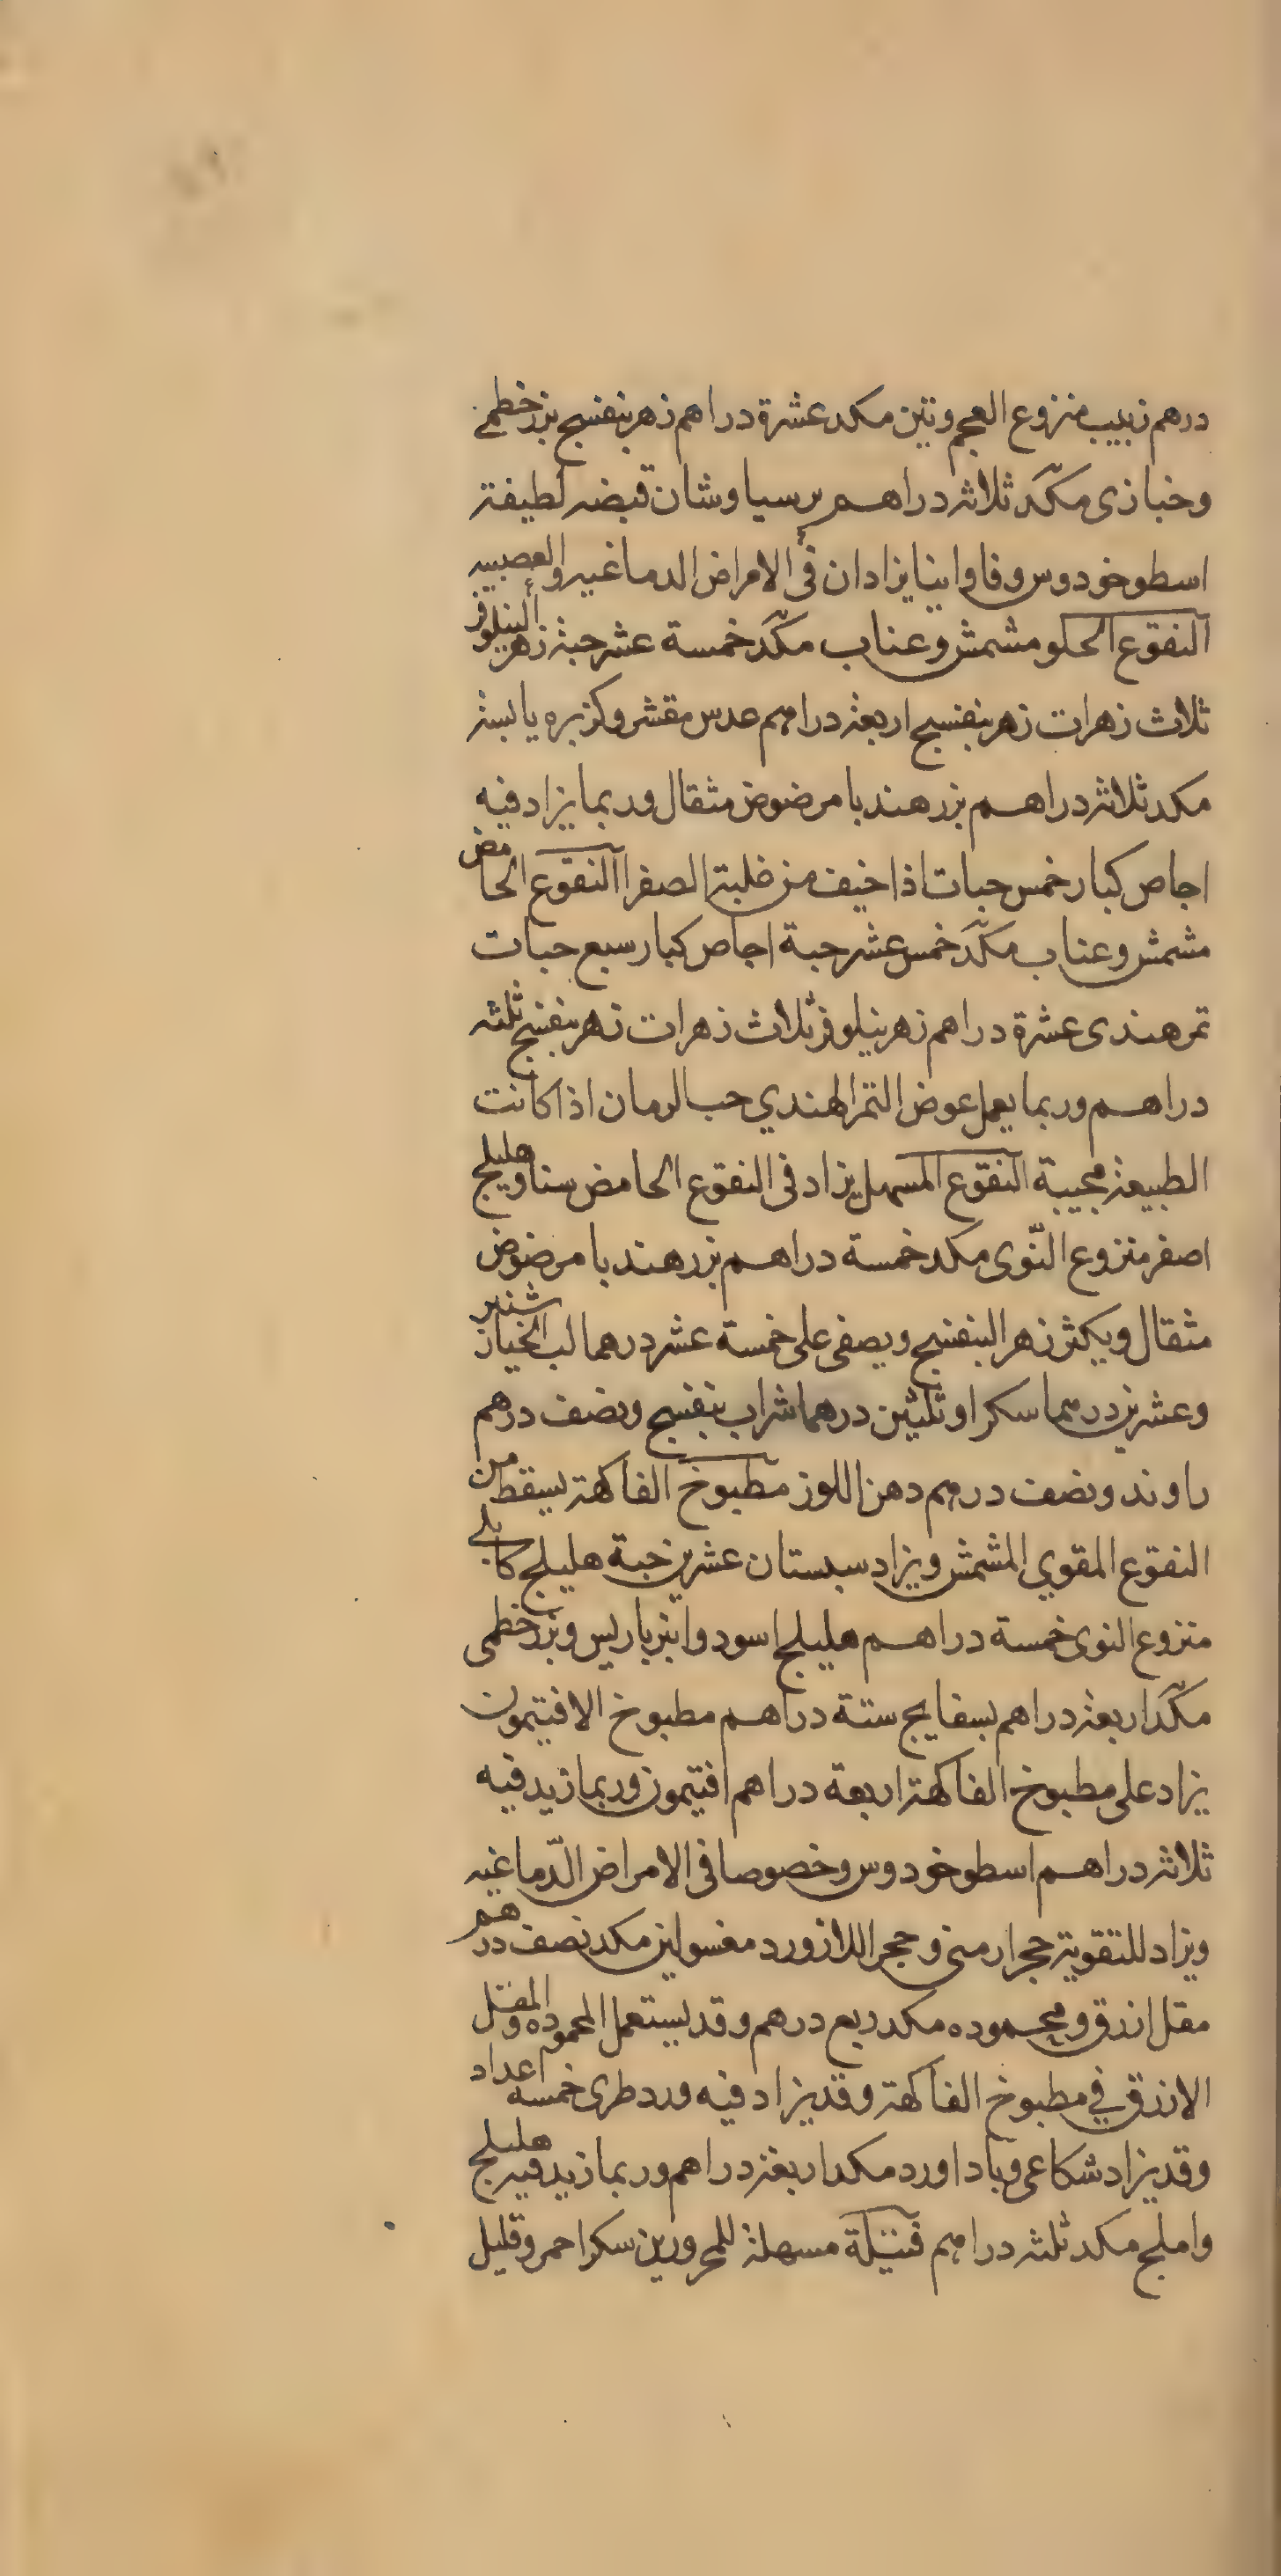 درهم زبيب منزوع العجم وتين مكد عشرة دراهم زهر بنفسج بزر خطمى
وخبازى مكّد ثلاثه دراهم برسياوشان قبضه لطيفة
اسطوخودوس وفاوانيا يزادان فى الامراض الدماغيه والعصبيه
النقوع الحلو مشمش وعناب مكّد خمسة عشر حبة زهر النيلوفر
ثلاث زهرات زهر بنفسج اربعة دراهم عدس مقشر وكزبره يابسة
مكد ثلاثة دراهم بزر هندبا مرضوض مثقال وربما يزاد فيه
اجاص كبار خمس حبات اذا خيف من غلبة الصفرا النقوع الحامض
مشمش وعناب مكّد خمس عشر حبة اجاص كبار سبع حبات
تمر هندى عشرة دراهم زهر نيلوفر ثلاث زهرات زهر بنفسج ثلثه
دراهم وربما يعمل عوض التمر الهندي حب الرمان اذا كانت
الطبيعة مجيبة النقوع المسهل يزاد فى النقوع الحامض سنا وهليلج
اصفر منزوع النّوى مكد خمسة دراهم بزر هندبا مرضوض
مثقال ويكثر زهر البنفسج ويصفى على خمسة عشر درهما لب الخيار شنبر
وعشرين درهما سكر او ثلثين درهما شراب بنفسج ونصف درهم
راوند ونصف درهم دهن اللوز مطبوخ الفاكهة يسقط من
النقوع المقوي المشمش ويزاد سبستان عشرين حبة هليلج كابلى
منزوع النوى خمسة دراهم هليلج اسود وانبرباريس وبزر خطمى
مكّد اربعة دراهم بسفايج ستة دراهم مطبوخ الافتيمون
يزاد على مطبوخ الفاكهة اربعة دراهم افتيمون وربما زيد فيه
ثلاثة دراهم اسطوخودوس وخصوصا فى الامراض الدّماغيه
ويزاد للتقوية حجر ارمنى وحجر اللازورد مغسولين مكد نصف درهم
مقل ازرق ومحموده مكد ربع درهم وقد يستعمل المحموده والمقل
الازرق في مطبوخ الفاكهة وقد يزاد فيه ورد طرى خمسه اعداد
وقد يزاد شكاعى وباداورد مكد اربعة دراهم وربما زيد فيه هليلج
واملج مكد ثلثه دراهم فتيلة مسهلة للمحرورين سكر احمر وقليل